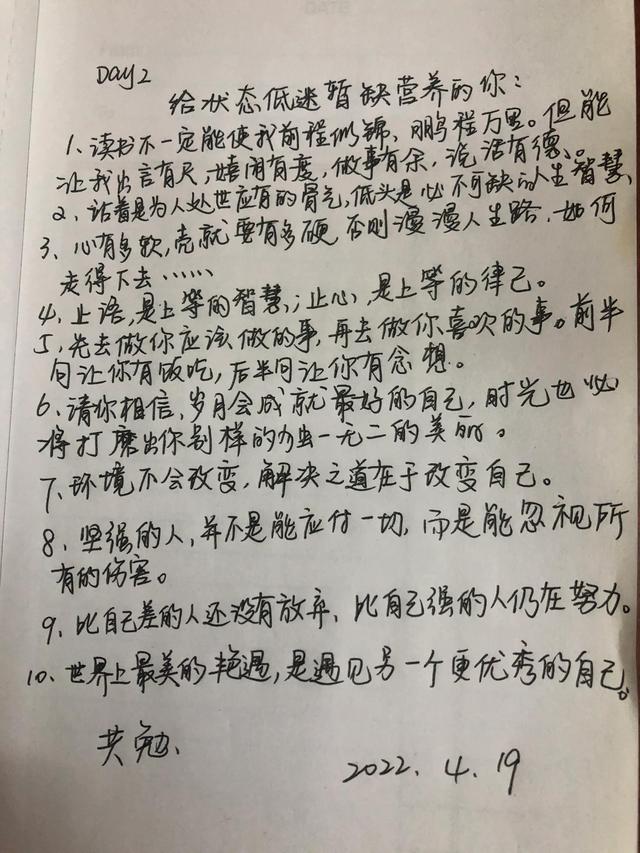 Day2
给状态低迷暂缺营养的你：
1、读书不一定能使我前程似锦、鹏程万里。但能
让我出言有尺，嬉闹有度，做事有余，说话有德、。
2、站着是为人处世应有的骨气，低头是必不可缺的人生智慧、
3、心有多软，壳就要有多硬，否则漫漫人生路，如何
走得下去……
4、止语，是上等的智慧，；止心，是上等的律己。
5、先去做你应该做的事，再去做你喜欢的事。前半
句让你有饭吃，后半句让你有念想。
6、请你相信、岁月会成就最好的自己，时光也必
将打磨出你别样的独一无二的美丽。
7、环境不会改变，解决之道在于改变自己。
8、坚强的人，并不是能应付一切，而是能忽视所
有的伤害。
9、比自己差的人还没有放弃、比自己强的人仍在努力。
10、世界上最美的艳遇，是遇见另一个更优秀的自己。
共勉、
2022.4.19